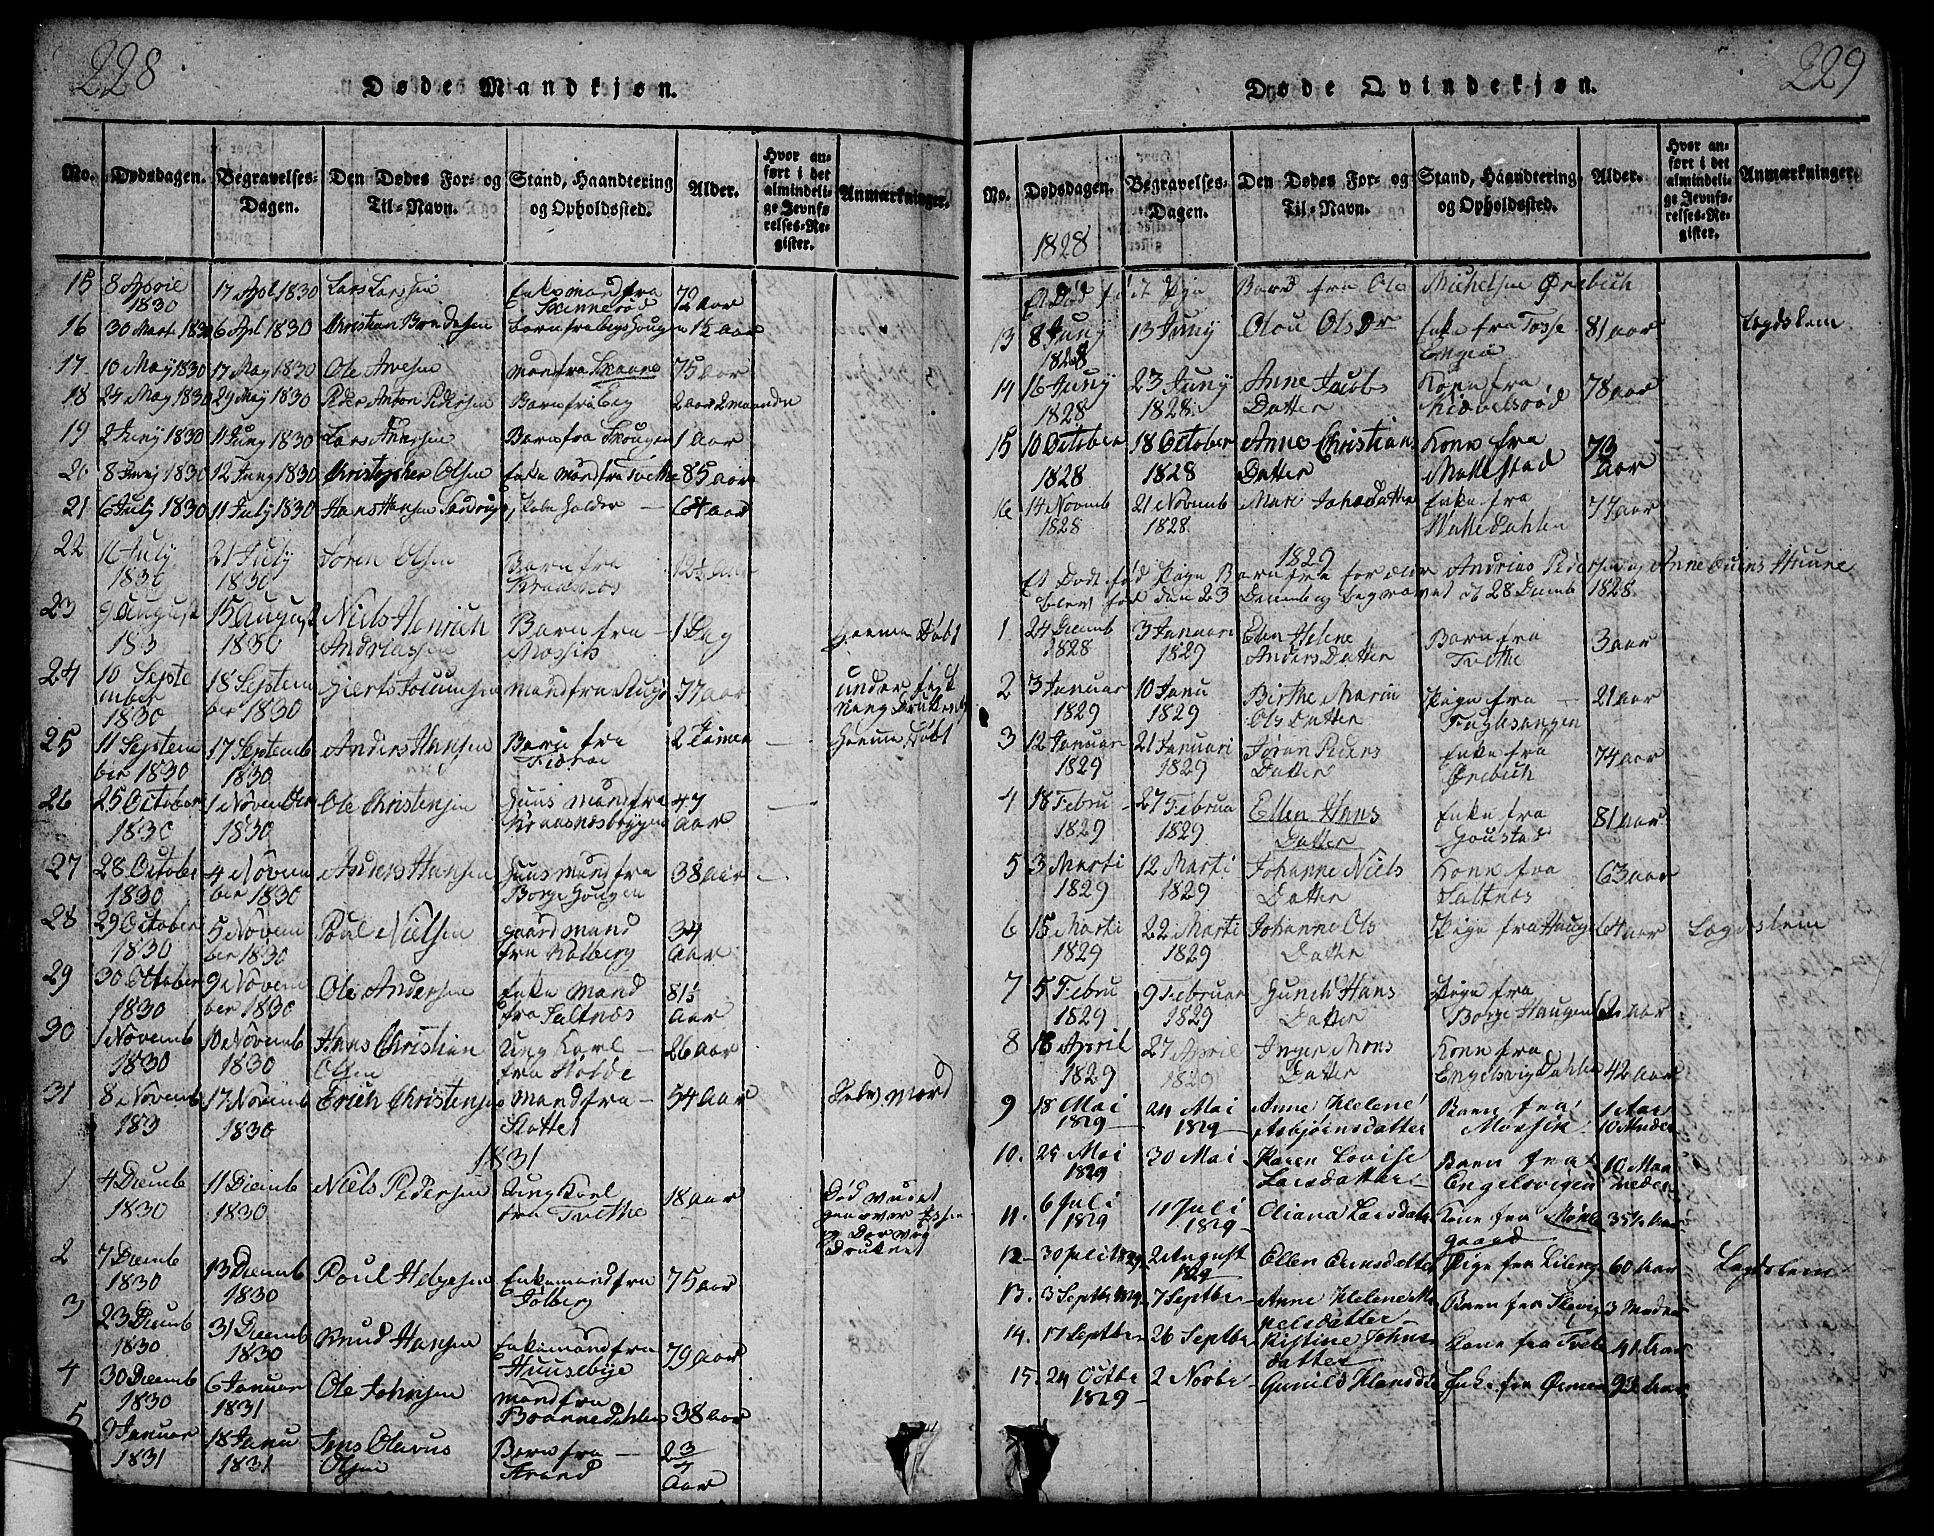 228
Døde Mandkjøn.
No. Dødsdagen. Begravelses-Dagen. Den Dødes For- og Til-Navn. Stand, Haandtering og Opholdssted. Alder. Hvor anført i det almindelige Jevnførelses-Register. Anmærkninger.
15 8 April 1830 17 Apl 1830 Lars Larsen Enkemand fra Skinnerød 72 aar
16 30 Mart 1830 6 Apl 1830 Christian Barn fra 1½ aar
17 10 May 1830 17 May 1830 Ole Mand fra Skaane 75 aar
18 24 May 1830 29 May 1830 Peder Anton Pedersen Barn fra berg 2 aar 2 maander
19 2 Juny 1830 11 Juny 1830 Lars Barn fra Skougen 1 aar
20 8 Juny 1830 12 Juny 1830 Christopher Olsen Enke Mand fra Tvethe 85 aar
21 6 July 1830 11 July 1830 Hans Hansen Skoleholder 64 aar
22 16 July 1830 21 July 1830 Søren Olsen Barn fra Kraasnæs
23 9 August 183 15 August 1830 Niels Henrich Andriassen Barn fra Mossik 1 Dag Hieme Døbt
24 10 September 1830 18 September 1830 Mand fra 77 aar
25 11 September 1830 17 Septemb 1830 Anders Hansen Barn fra 2 Timer Hieme Døbt
26 25 October 1830 1 November 1830 Ole Christensen Huus mand fra Kraasnæsbryggen 47 aar
27 28 October 1830 4 November 1830 Anders Hansen Huus mand fra Borge Hougen 38 aar
28 29 October 1830 5 November 1830 Poul Nielsen Gaardmand fra Kalberg 34 aar
29 30 October 1830 9 November 1830 Ole Andersen Enke Mand fra Saltnæs 81½ aar
30 1 Novemb 1830 10 Novemb 1830 Hans Christian Olsen Ung Karl fra Holde 26 aar
31 8 Novemb 183 17 Novemb 1830 Erich Christensen Mand fra Slotte 54 aar Selv Mord
1831
1 4 Decemb 1830 11 Decemb 1830 Niels Pedersen Ung Karl fra Tvethe 18 aar
2 7 Decemb 1830 13 Decemb 1830 Poul Helgesen Enkemand fra Sølberg 75 aar
3 23 Decemb 1830 31 Decemb 1830 Knud Hansen Enkemand fra Huusebye 79 aar
4 30 Decemb 1830 6 Januar 1831 Ole Johnsen Mand fra Brannedahlen 38 aar
5 9 Januar 1831 18 Janu 1831 Jens Olavus Olsen Barn fra Strand 2 3/4 aar
229
Døde Qvindekjøn.
No. Dødsdagen. Begravelses-Dagen. Den Dødes For- og Til-Navn. Stand, Haandtering og Opholdssted. Alder. Hvor anført i det almindelige Jevnførelses-Register. Anmærkninger.
1828
Et Død født Pige Barn fra Ole Michelsen Ørebech
13 8 Juny 1828 13 Juny Olou Olsdr Enke fra Tosse Engen 81 aar Lægdslem
14 16 Juny 1828 23 Juny 1828 Anne Jacobs Datter Kone fra 78 aar
15 10 October 1828 18 October 1828 Anne Christian Datter Kone fra Mallestad 73 aar
16 14 Novemb 1828 21 Novemb 1828 Mari Johnsdatter Enke fra Dahlen 77 aar
1829
Et Død fød Pige Barn fra Andrias Peder
blev fød den 23 Decemb og begravet d 28 Decemb 1828
1 24 Decemb 1828 3 Januari 1829 Elen Helene Anders Datter Barn fra Tvethe 3 aar
2 3 Januar 1829 10 Janu 1829 Birthe Marin Ols Datter Pige fra Fuglesangen 21 aar
3 12 Januar 1829 21 Januari 1829 Jøran Peders Datter Enke fra Ørebech 74 aar
4 18 Febru 1829 27 Februa 1829 Ellen Hans Datter Enke fra Goustad 81 aar
5 3 Marti 1829 12 Marti 1829 Johanne Niels Datter Kone fra Saltnæs 63 aar
6 15 Marti 1829 22 Marti 1829 Johanne Ols Datter Pige fra Haug 64 aar Lægdslem
7 5 Febru 1829 9 Februar 1829 Hans Datter Pige fra Borge Haugen aar
8 18 April 1829 27 April 1829 Inger Mons Datter Kone fra Engelsvig Dahlen 42 aar
9 18 Mai 1829 24 Mai 1829 Anne Helene Asbjørnsdatter Barn fra Mossik 1 Aar 10 Mdner
10. 25 Mai 1829 30 Mai Karen Lovise Larsdatter Barn fra Engelsvigen 10 Maaneder
11. 6 Juli 1829 11 Juli 1829 Oliana Larsdatr Kone fra gaard 35½ Aar
12 30 Juli 1829 2 August 1829 Ellen Eriksdatter Pige fra 60 Aar Lægdslem
13. 3 Septbr 1829 7 Septbr Anne Helene datter Barn fra 3 Maaneder
14. 17 Septbr 26 Septbr Kistine Johns datter Kone fra Tvete 41 Aar
15. 24 Octbr 1829 2 Novbr Gunild Hansdr Enke fra Ørmen Aar